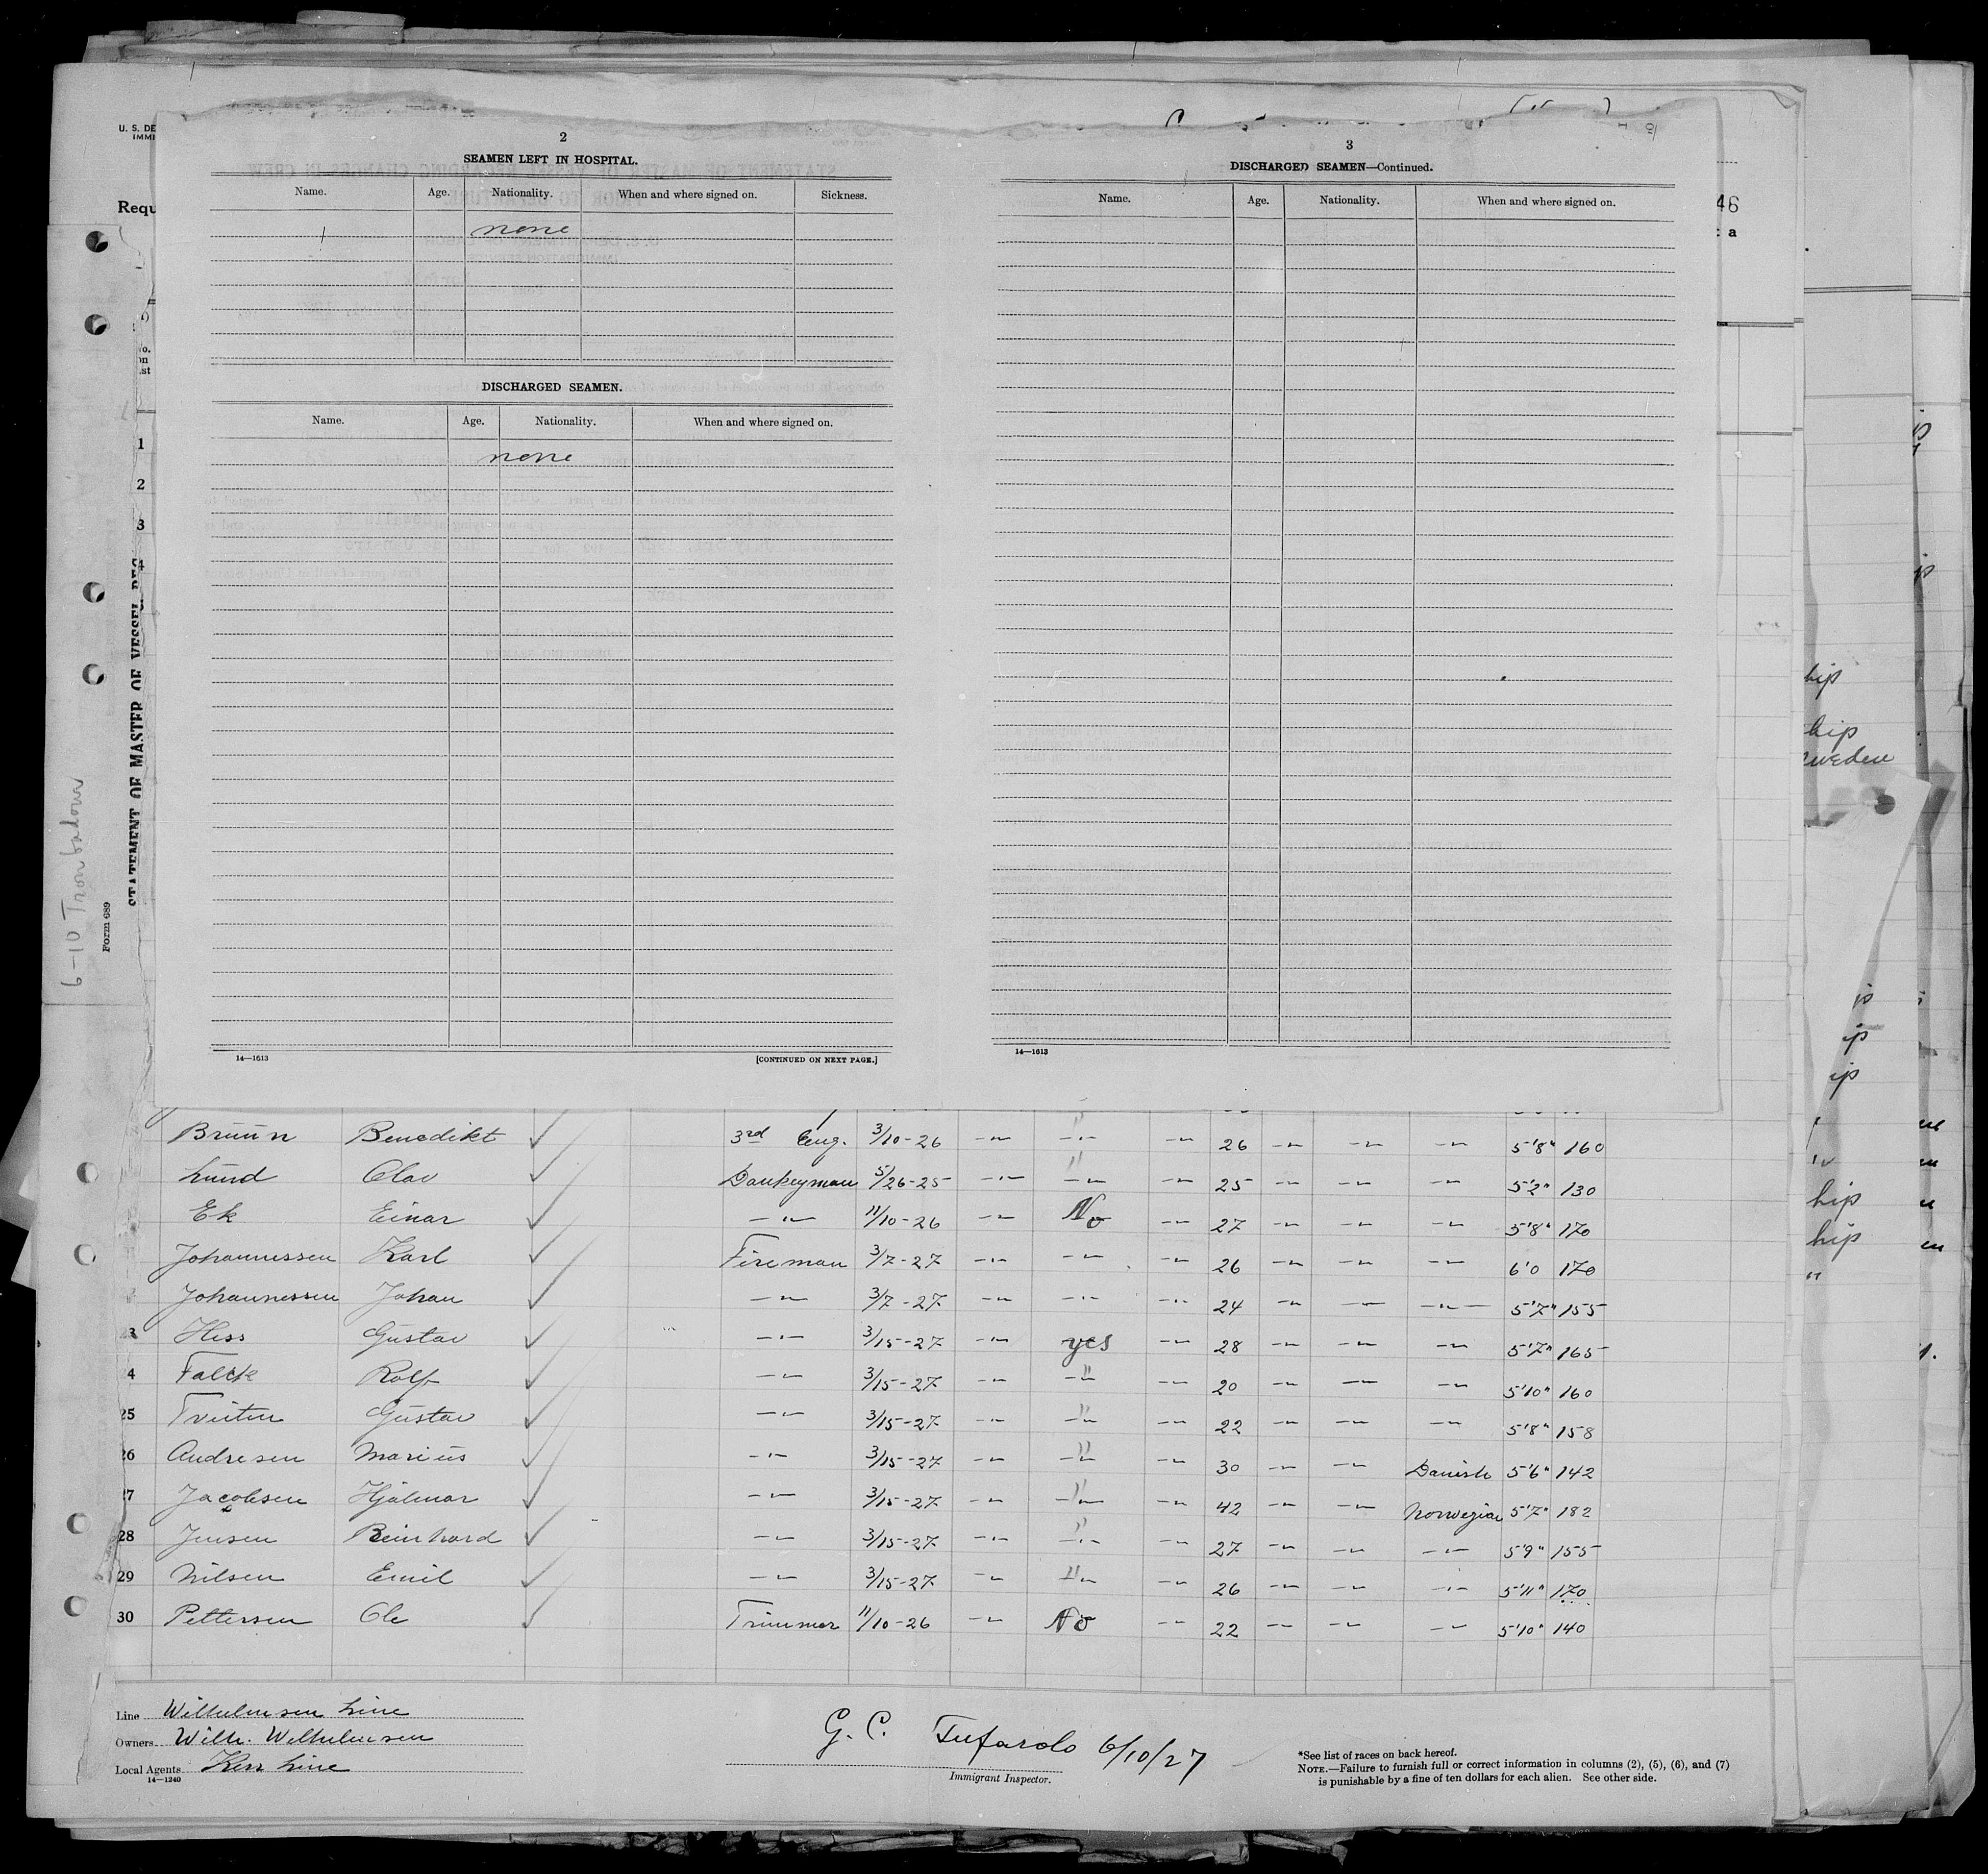 U. S. DE
IMMI
Requ
2
SEAMEN LEFT IN HOSPITAL.
Name. Age. Nationality. When and where signed on. Sickness.
none
DISCHARGED SEAMEN.
Name. Age. Nationality. When and where signed on.
none
14—1613 [CONTINUED ON NEXT PAGE.]
3
DISCHARGED SEAMEN—Continued.
Name. Age. Nationality. When and where signed on.
14—1613
46
: a
1
2
3
4
STATEMENT OF MASTER OF VESSEL REG
Form 689
6-10 Troubadour
hip
hip
Sweden
ip
ip
ip
hip
hip
Bruun Benedikt ✓ 3rd Eng. 3/10-26 -"- -"- -"- 26 -"- -"- -"- 5'8" 160
Lund Olav ✓ Donkeyman 5/26-25 -"- -"- -"- 25 -"- -"- -"- 5'2" 130
Ek Einar ✓ -"- 11/10-26 -"- No -"- 27 -"- -"- -"- 5'8" 170
Johannessen Karl ✓ Fireman 3/7-27 -"- -"- -"- 26 -"- -"- -"- 6'0 170
Johannessen Johan ✓ -"- 3/7-27 -"- -"- -"- 24 -"- -"- -"- 5'7" 155
23 Hess Gustav ✓ -"- 3/15-27 -"- yes -"- 28 -"- -"- -"- 5'7" 165
4 Falck Rolf ✓ -"- 3/15-27 -"- -"- -"- 20 -"- -"- -"- 5'10" 160
25 Tveiten Gustav ✓ -"- 3/15-27 -"- -"- -"- 22 -"- -"- -"- 5'8" 158
26 Andresen Marius ✓ -"- 3/15-27 -"- -"- -"- 30 -"- -"- Danish 5'6" 142
27 Jacobsen Hjalmar ✓ -"- 3/15-27 -"- -"- -"- 42 -"- -"- Norwegian 5'7" 182
28 Jensen Reinhard ✓ -"- 3/15-27 -"- -"- -"- 27 -"- -"- -"- 5'9" 155
29 Nilsen Emil ✓ -"- 3/15-27 -"- -"- -"- 26 -"- -"- -"- 5'11" 170
30 Pettersen Ole ✓ Trimmer 11/10-26 -"- No -"- 22 -"- -"- -"- 5'10" 140
Line Wilhelmsen Line
Owners Wilh. Wilhelmsen
Local Agents Kerr Line
14—1240
G. C. Tufarolo 6/10/27
Immigrant Inspector.
*See list of races on back hereof.
NOTE.—Failure to furnish full or correct information in columns (2), (5), (6), and (7)
is punishable by a fine of ten dollars for each alien. See other side.